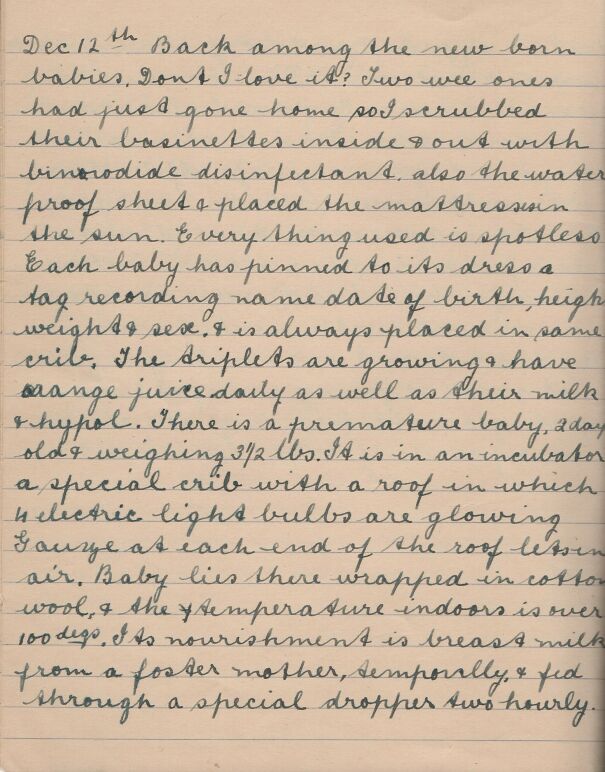 Dec 12th Back among the new born
babies. Dont I love it? Two wee ones
had just gone home so I scrubbed
their basinettes inside & out with
biniodide disinfectant. also the water
proof sheet & placed the mattresses in
the sun. Every thing used is spotless
Each baby has pinned to its dress a
tag recording name date of birth, heigh
weight & sex. & is always placed in same
crib. The triplets are growing & have
orange juice daily as well as their milk
& hypol. There is a premature baby, 2 day
old & weighing 3 1/2 lbs. It is in an incubator
a special crib with a roof in which
4 electric light bulbs are glowing
Gauze at each end of the roof lets in
air. Baby lies there wrapped in cotton
wool, & the temperature indoors is over
100 degs. Its nourishment is breast milk
from a foster mother, temporilly, & fed
through a special dropper two hourly.